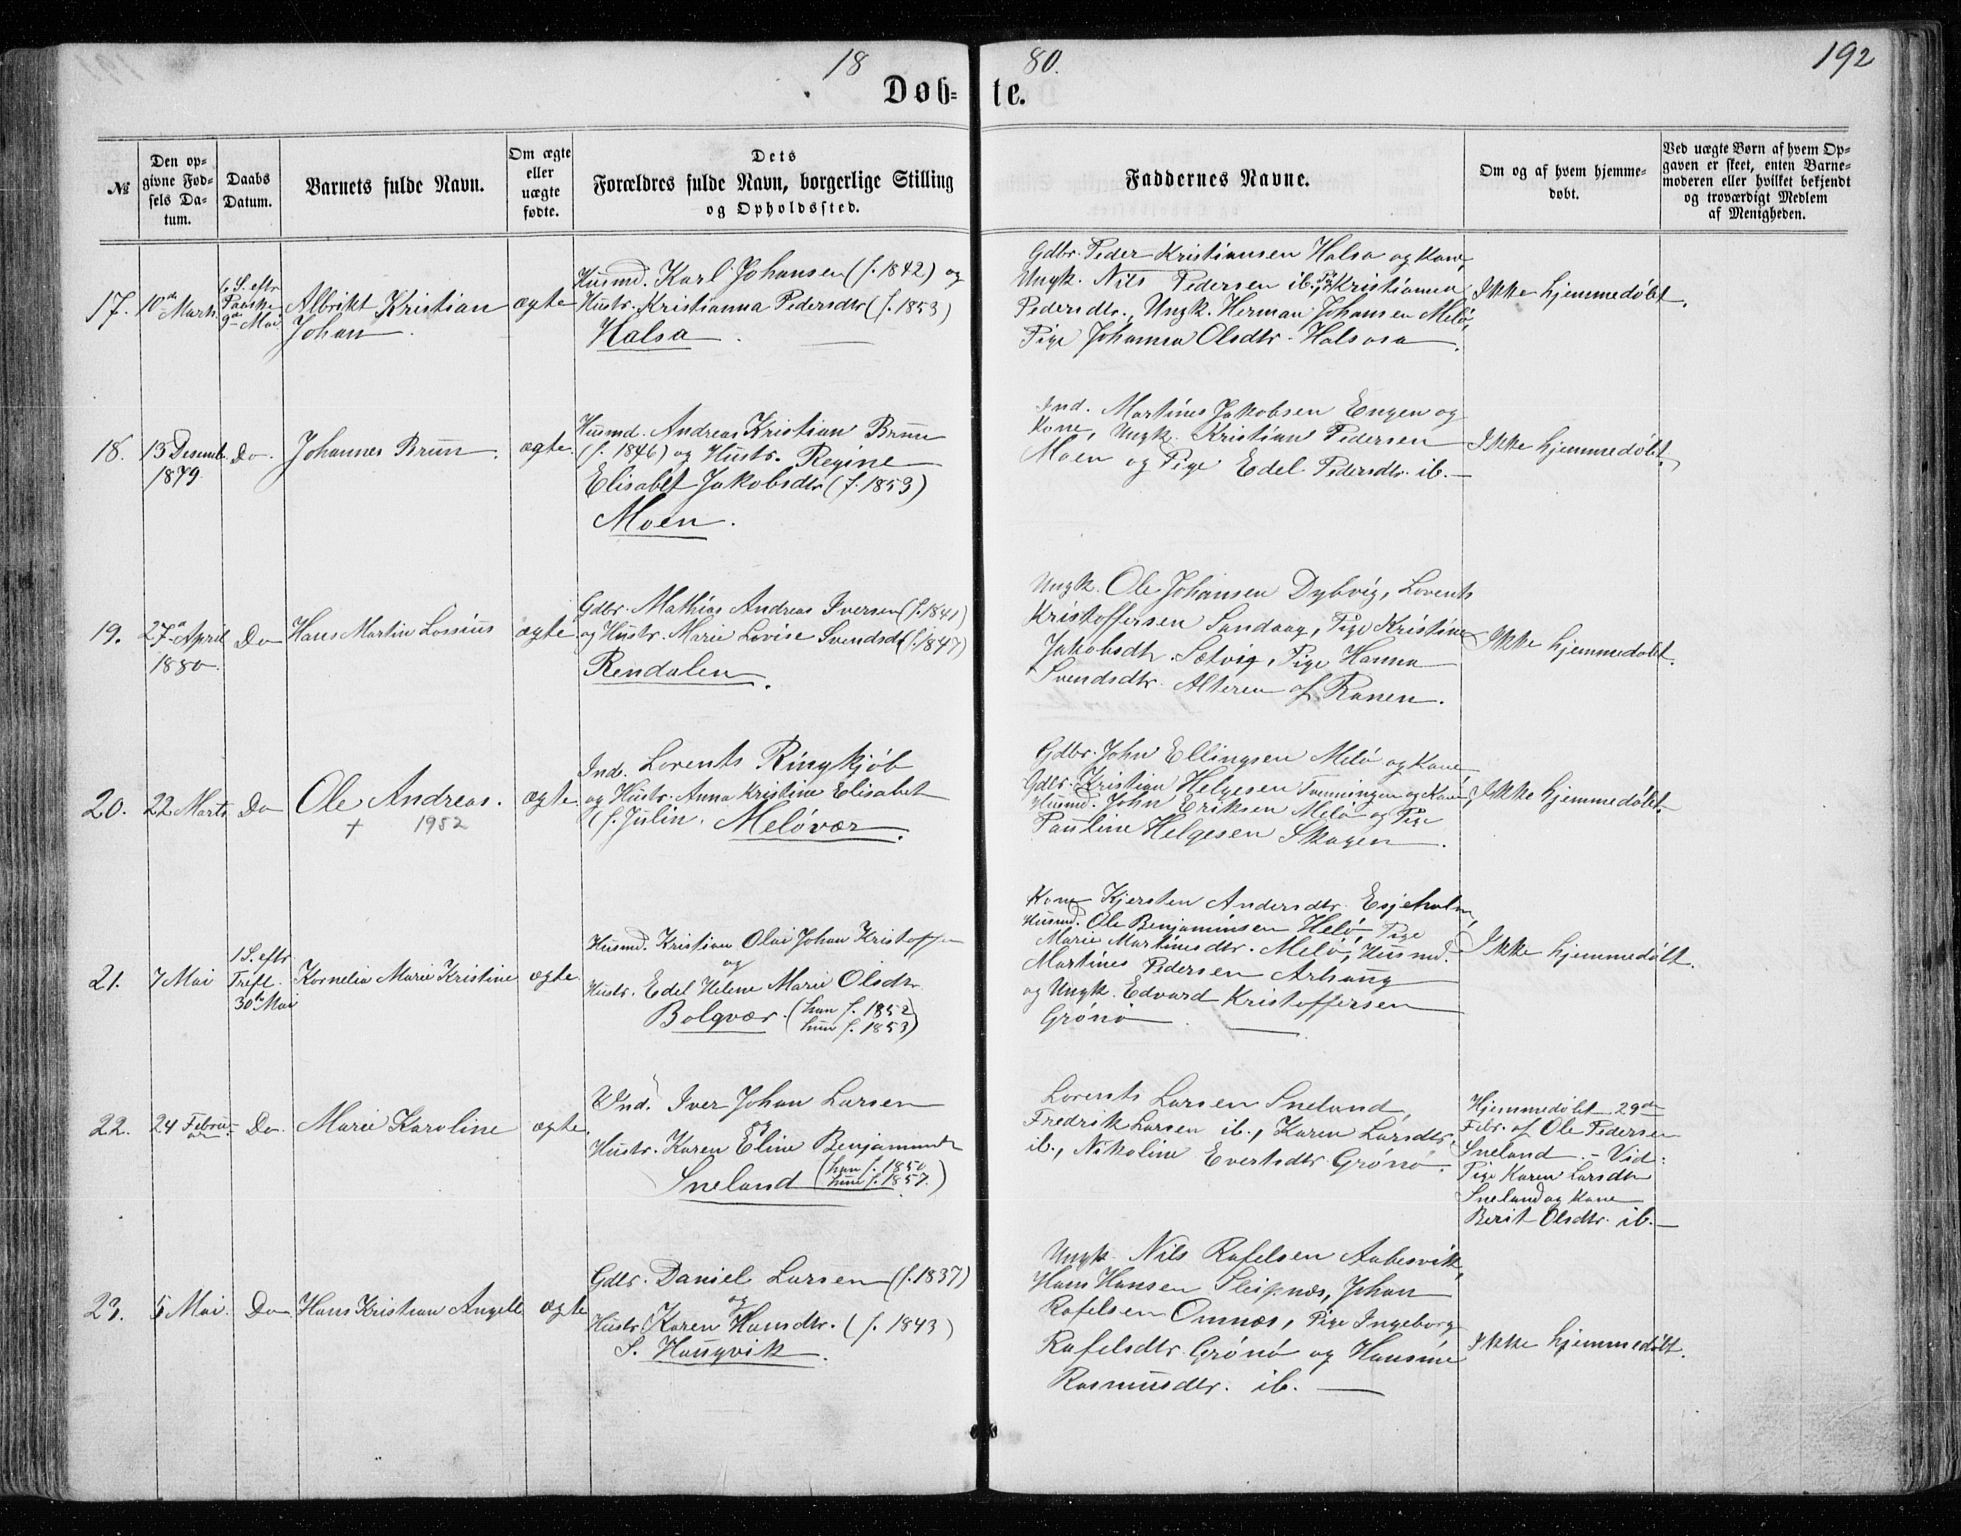 18 80. 192
Døb- te.
№
Den op-
givne Fød-
sels Da-
tum.
Daabs
Datum.
Barnets fulde Navn.
Om ægte
eller
uægte
fødte.
Dets
Forældres fulde Navn, borgerlige Stilling
og Opholdssted.
Faddernes Navne.
Om og af hvem hjemme-
døbt.
Ved uægte Børn af hvem Op-
gaven er skeet, enten Barne-
moderen eller hvilket bekjendt
og troværdigt Medlem
af Menigheden.
17.
10de Marts
6 S. eftr
Paaske
9de Mai
Albrikt Kristian
Johan.
ægte
Husmd. Karl Johansen (f. 1842) og
Hustr. Kristianna Pedersdtr (f. 1853)
Halsa.
Gdbr. Peder Kristiansen Halsa og Kone,
Ungk. Nils Pedersen ib., Kristianna
Pedersdtr., Ungk. Herman Johansen Melø,
Pige Johanna Olsdtr. Halsosa.
Ikke hjemmedøbt.
18.
13 Desemb.
1879.
Do.
Johannes Brun.
ægte.
Husmd. Andreas Kristian Brun
(f. 1846) og Hustr. Regine
Elisabet Jakobsdtr (f. 1853)
Moen.
Ind. Martines Jakobsen Engen og
Kone, Ungk. Kristian Pedersen
Moen og Pige Edel Pedersdtr. ib.
Ikke hjemmedøbt.
19.
27de April
1880.
Do
Hans Martin Lossius
ægte
Gdbr. Mathias Andreas Iversen (f. 1841)
og Hustr. Marie Lovise Svendsdt (f. 1847)
Rendalen.
Ungk. Ole Johansen Dybvig, Lorents
Kristoffersen Sandaag, Pige Kristine
Jakobsdtr. Sætvig, Pige Hanna
Svendsdtr. Alteren af Ranen.
Ikke hjemmedøbt.
20.
22 Marts
Do
Ole Andreas.
† 1952
ægte.
Ind. Lorents Ringkjøb
og Hustr. Anna Kristine Elisabet
(f. Julin. Meløvær.
Gdbr. John Ellingsen Melø og Kone
Gdbr. Kristian Helgesen Tønningen og Kone,
Husmd. John Eriksen Melø og Pige
Pauline Helgesen Skagen.
Ikke hjemmedøbt.
21.
7 Mai
1 S. eftr
Treft.
30te Mai
Kornelia Marie Kristine
ægte
Husmd. Kristian Olai Johan Kristoffer
og
Hustr. Edel Helene Marie Olsdtr.
Bolgvær. (han f. 1852
hun f. 1853)
Kone Kjersten Andersdtr. Esjeholm,
Husmd. Ole Benjaminsen Melø, Pige
Marie Martinesdtr. Melø, Husmd.
Martines Pedersen Arhaug
og Ungk. Edvard Kristoffersen
Grønø.
Ikke hjemmedøbt.
22.
24 Febru-
ar
Do.
Marie Karoline
ægte.
Ind. Iver Johan Larsen
og
Hustr. Karen Eline Benjaminsdtr
Sneland (han f. 1850
hun f. 1857.)
Lorents Larsen Sneland,
Fredrik Larsen ib., Karen Larsdtr.
ib., Nikoline Evertsdtr. Grønø.
Hjemmedøbt 29de
Febr. af Ole Pedersen
Sneland. - Vid:
Pige Karen Larsdtr
Sneland og Kone
Berit Olsdtr. ib.
23.
5 Mai.
Do
Hans Kristian Angell
ægte
Gdbr. Daniel Larsen (f. 1837)
og
Hustr. Karen Hansdtr. (f. 1843)
S. Haugvik.
Ungk. Nils Rafelsen Aabesvik,
Hans Hansen Sleipnæs, Johan
Rafelsen Omnæs, Pige Ingeborg
Rafelsdtr. Grønø og Hansine
Rasmusdtr. ib.
Ikke hjemmedøbt.